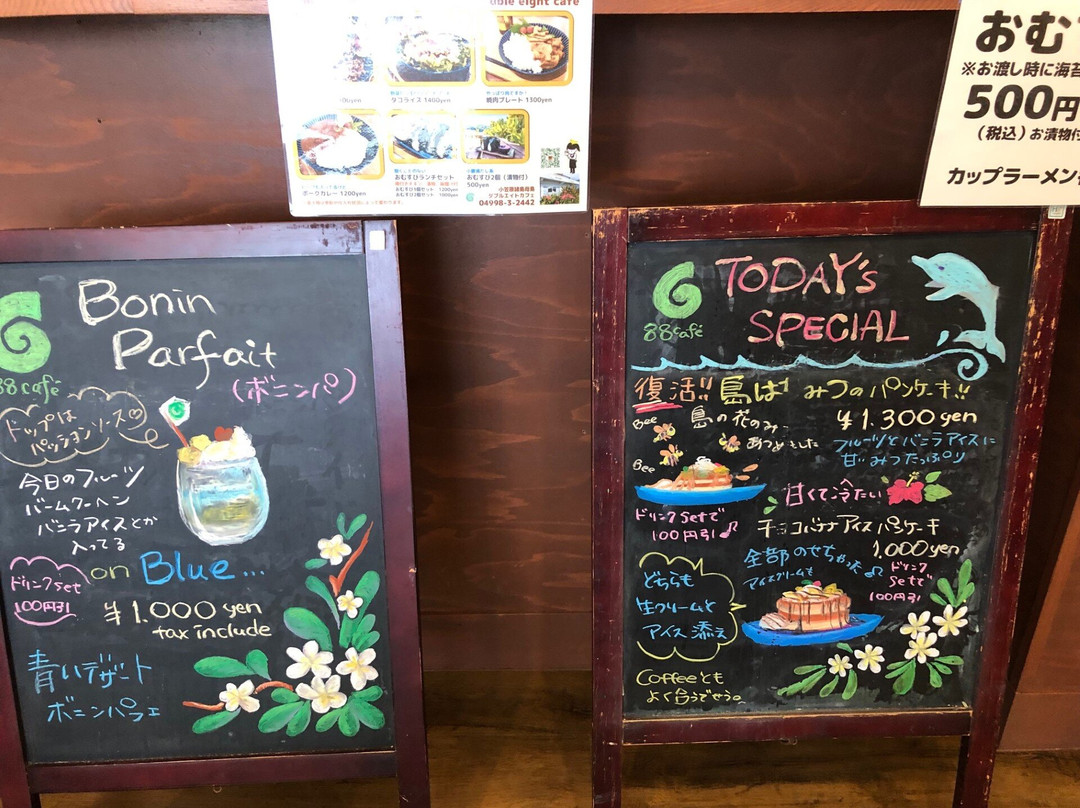 uble eight cafe
タコライス 1400yen
焼肉プレート 1300yen
ポークカレー 1200yen
おむすびランチセット
おむすび2個（漬物付）
500yen
小笠原諸島母島
ダブルエイトカフェ
04998-3-2442
おむ
※お渡し時に海苔
500円
（税込）お漬物付
カップラーメン
88 cafe
Bonin
Parfait
（ボニンパ）
トップは
パッションソース♡
今日のフルーツ
バームクーヘン
バニラアイスとか
入ってる
on Blue...
ドリンクset
100円引
¥1.000 yen
tax include
青いデザート
ボニンパフェ
88café
TODAY's
SPECIAL
復活!! 島はちみつのパンケーキ!!
¥1.300 yen
Bee
島の花のみ
あつめました
Bee
フルーツとバニラアイスに
甘いみつたっぷり
ドリンクsetで
100円引♪
甘くて冷たい
チョコバナナアイスパンケーキ
1,000yen
全部のせちゃった♪
アイスクリームも
ドリンク
setで
100円引
どちらも
生クリームと
アイス添え
Coffeeとも
よく合うでせう。